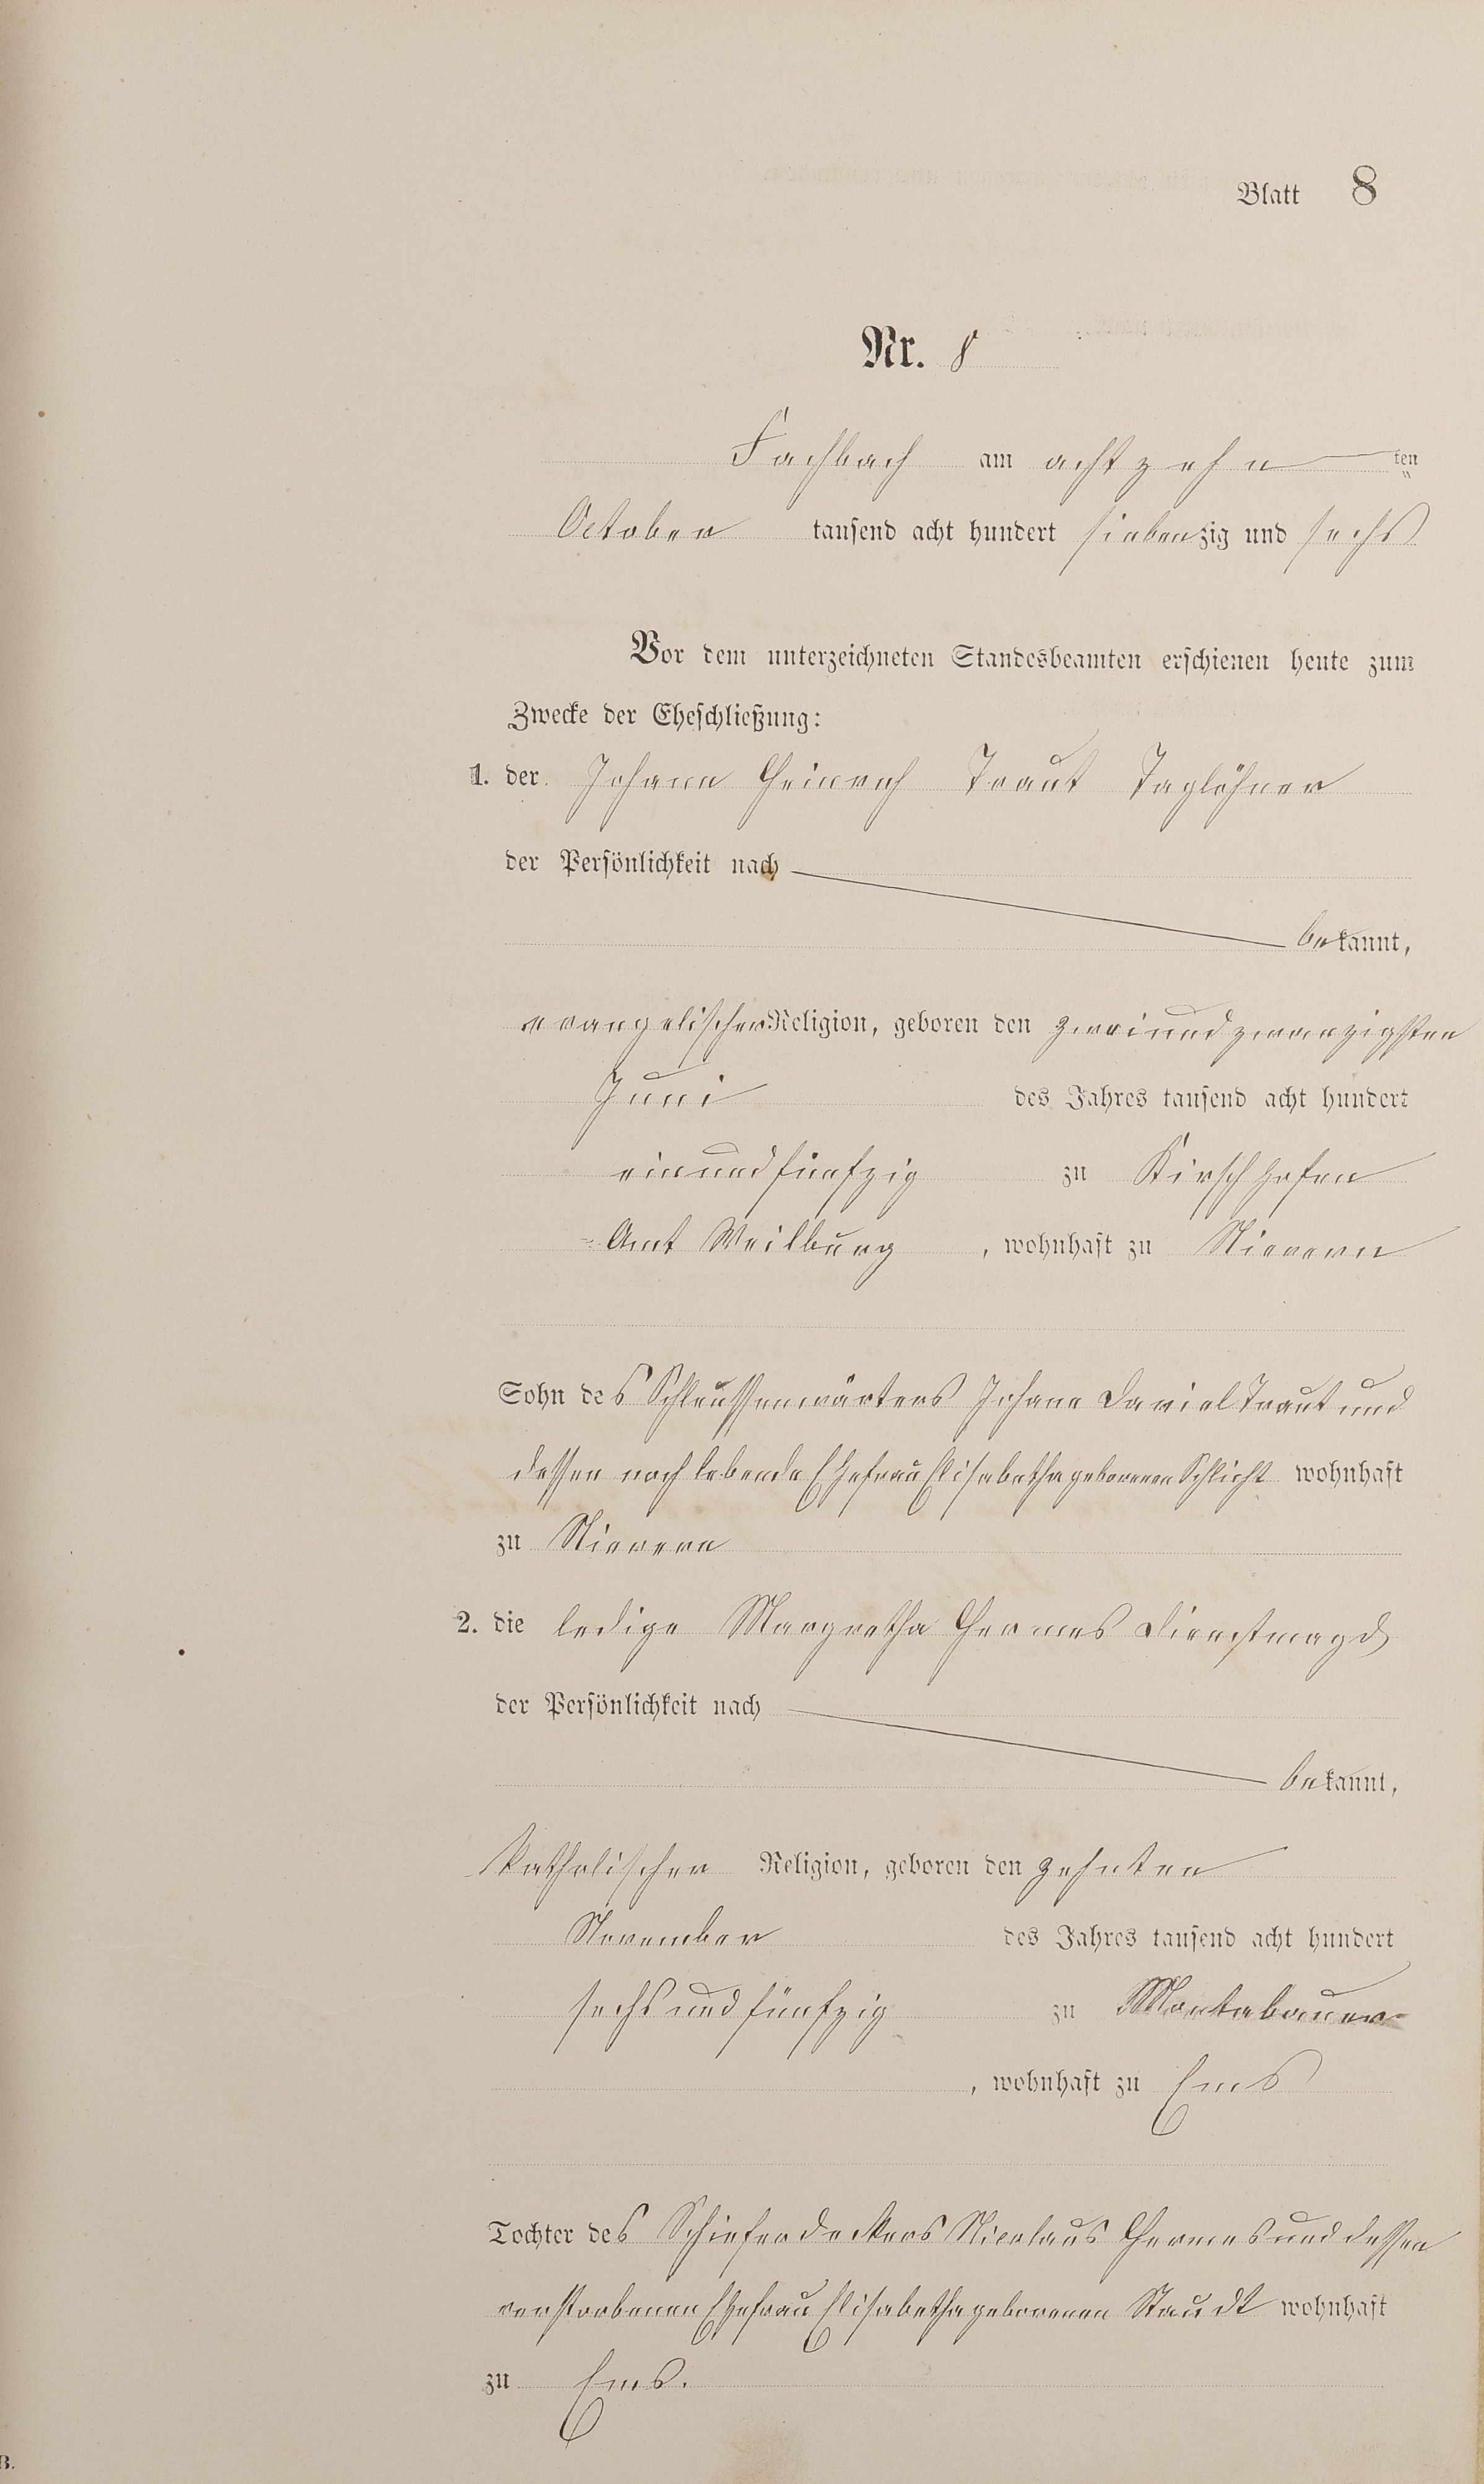 Blatt 8
Nr. 8
Fachbach am achtzehn ten
"
October tausend acht hundert siebenzig und sechs
Vor dem unterzeichneten Standesbeamten erschienen heute zum
Zwecke der Eheschließung:
1. der Johann Heinrich Traut Taglöhner
der Persönlichkeit nach
bekannt,
evangelischer Religion, geboren den zweiundzwanzigsten
Juni des Jahres tausend acht hundert
einundfünfzig zu Kirschhofen
Amt Weilburg, wohnhaft zu Nievern
Sohn des Schleussenwärters Johann Daniel Traut und
dessen noch lebende Ehefrau Elisabetha geborenen Schlicht wohnhaft
zu Nievern
2. die ledige Margretha Hermes Dienstmagd
der Persönlichkeit nach
bekannt,
katholischer Religion, geboren den zehnten
November des Jahres tausend acht hundert
sechsundfünfzig zu Montabauer
, wohnhaft zu Ems
Tochter des Schieferdeckers Nicolaus Hermes und dessen
verstorbenen Ehefrau Elisabetha geborenen Staudt wohnhaft
zu Ems.
B.